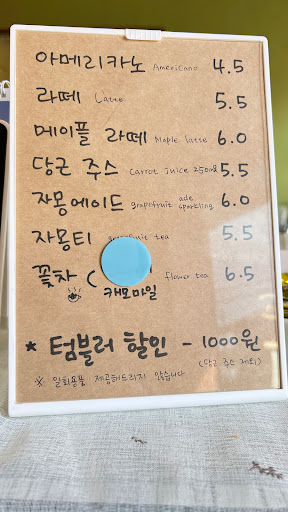 아메리카노 Americano 4.5
라떼 Latte 5.5
메이플 라떼 Maple latte 6.0
당근 주스 Carrot Juice 250ml 5.5
자몽에이드 grapefruit ade sparkling 6.0
자몽티 grapefruit tea 5.5
꽃차 ( flower tea 6.5
캐모마일
* 텀블러 할인 - 1000원
(당근 주스 제외)
※ 일회용품 제공해드리지 않습니다